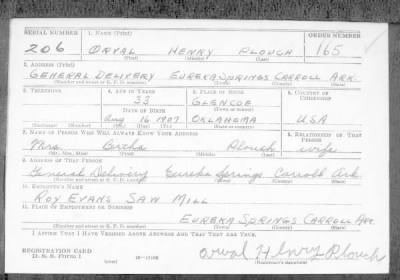 SERIAL NUMBER 1. NAME (Print) ORDER NUMBER
206 ORVAL HENRY PLOUCH 165
(First) (Middle) (Last)
2. ADDRESS (Print)
GENERAL DELIVERY EUREKA SPRINGS CARROLL ARK.
(Number and street or R. F. D. number) (Town) (County) (State)
3. TELEPHONE 4. AGE IN YEARS 5. PLACE OF BIRTH 6. COUNTRY OF CITIZENSHIP
33 GLENCOE
DATE OF BIRTH (Town or county)
Aug 16 1907 OKLAHOMA USA
(Exchange) (No.) (Mo.) (Day) (Yr.) (State or country)
7. NAME OF PERSON WHO WILL ALWAYS KNOW YOUR ADDRESS 8. RELATIONSHIP OF THAT PERSON
Mrs. Bertha Plouch wife
(Mr., Mrs., Miss) (First) (Middle) (Last)
9. ADDRESS OF THAT PERSON
General Delivery Eureka Springs Carroll Ark.
(Number and street or R. F. D. number) (Town) (County) (State)
10. EMPLOYER'S NAME
ROY EVANS SAW MILL
11. PLACE OF EMPLOYMENT OR BUSINESS
EUREKA SPRINGS CARROLL ARK.
(Number and street or R. F. D. number) (Town) (County) (State)
I AFFIRM THAT I HAVE VERIFIED ABOVE ANSWERS AND THAT THEY ARE TRUE.
REGISTRATION CARD
D. S. S. Form 1 (over) Orval Henry Plouch
(Registrant's signature)